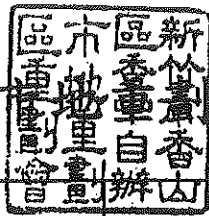 新竹香山
區自辦
市地重劃
區重劃會